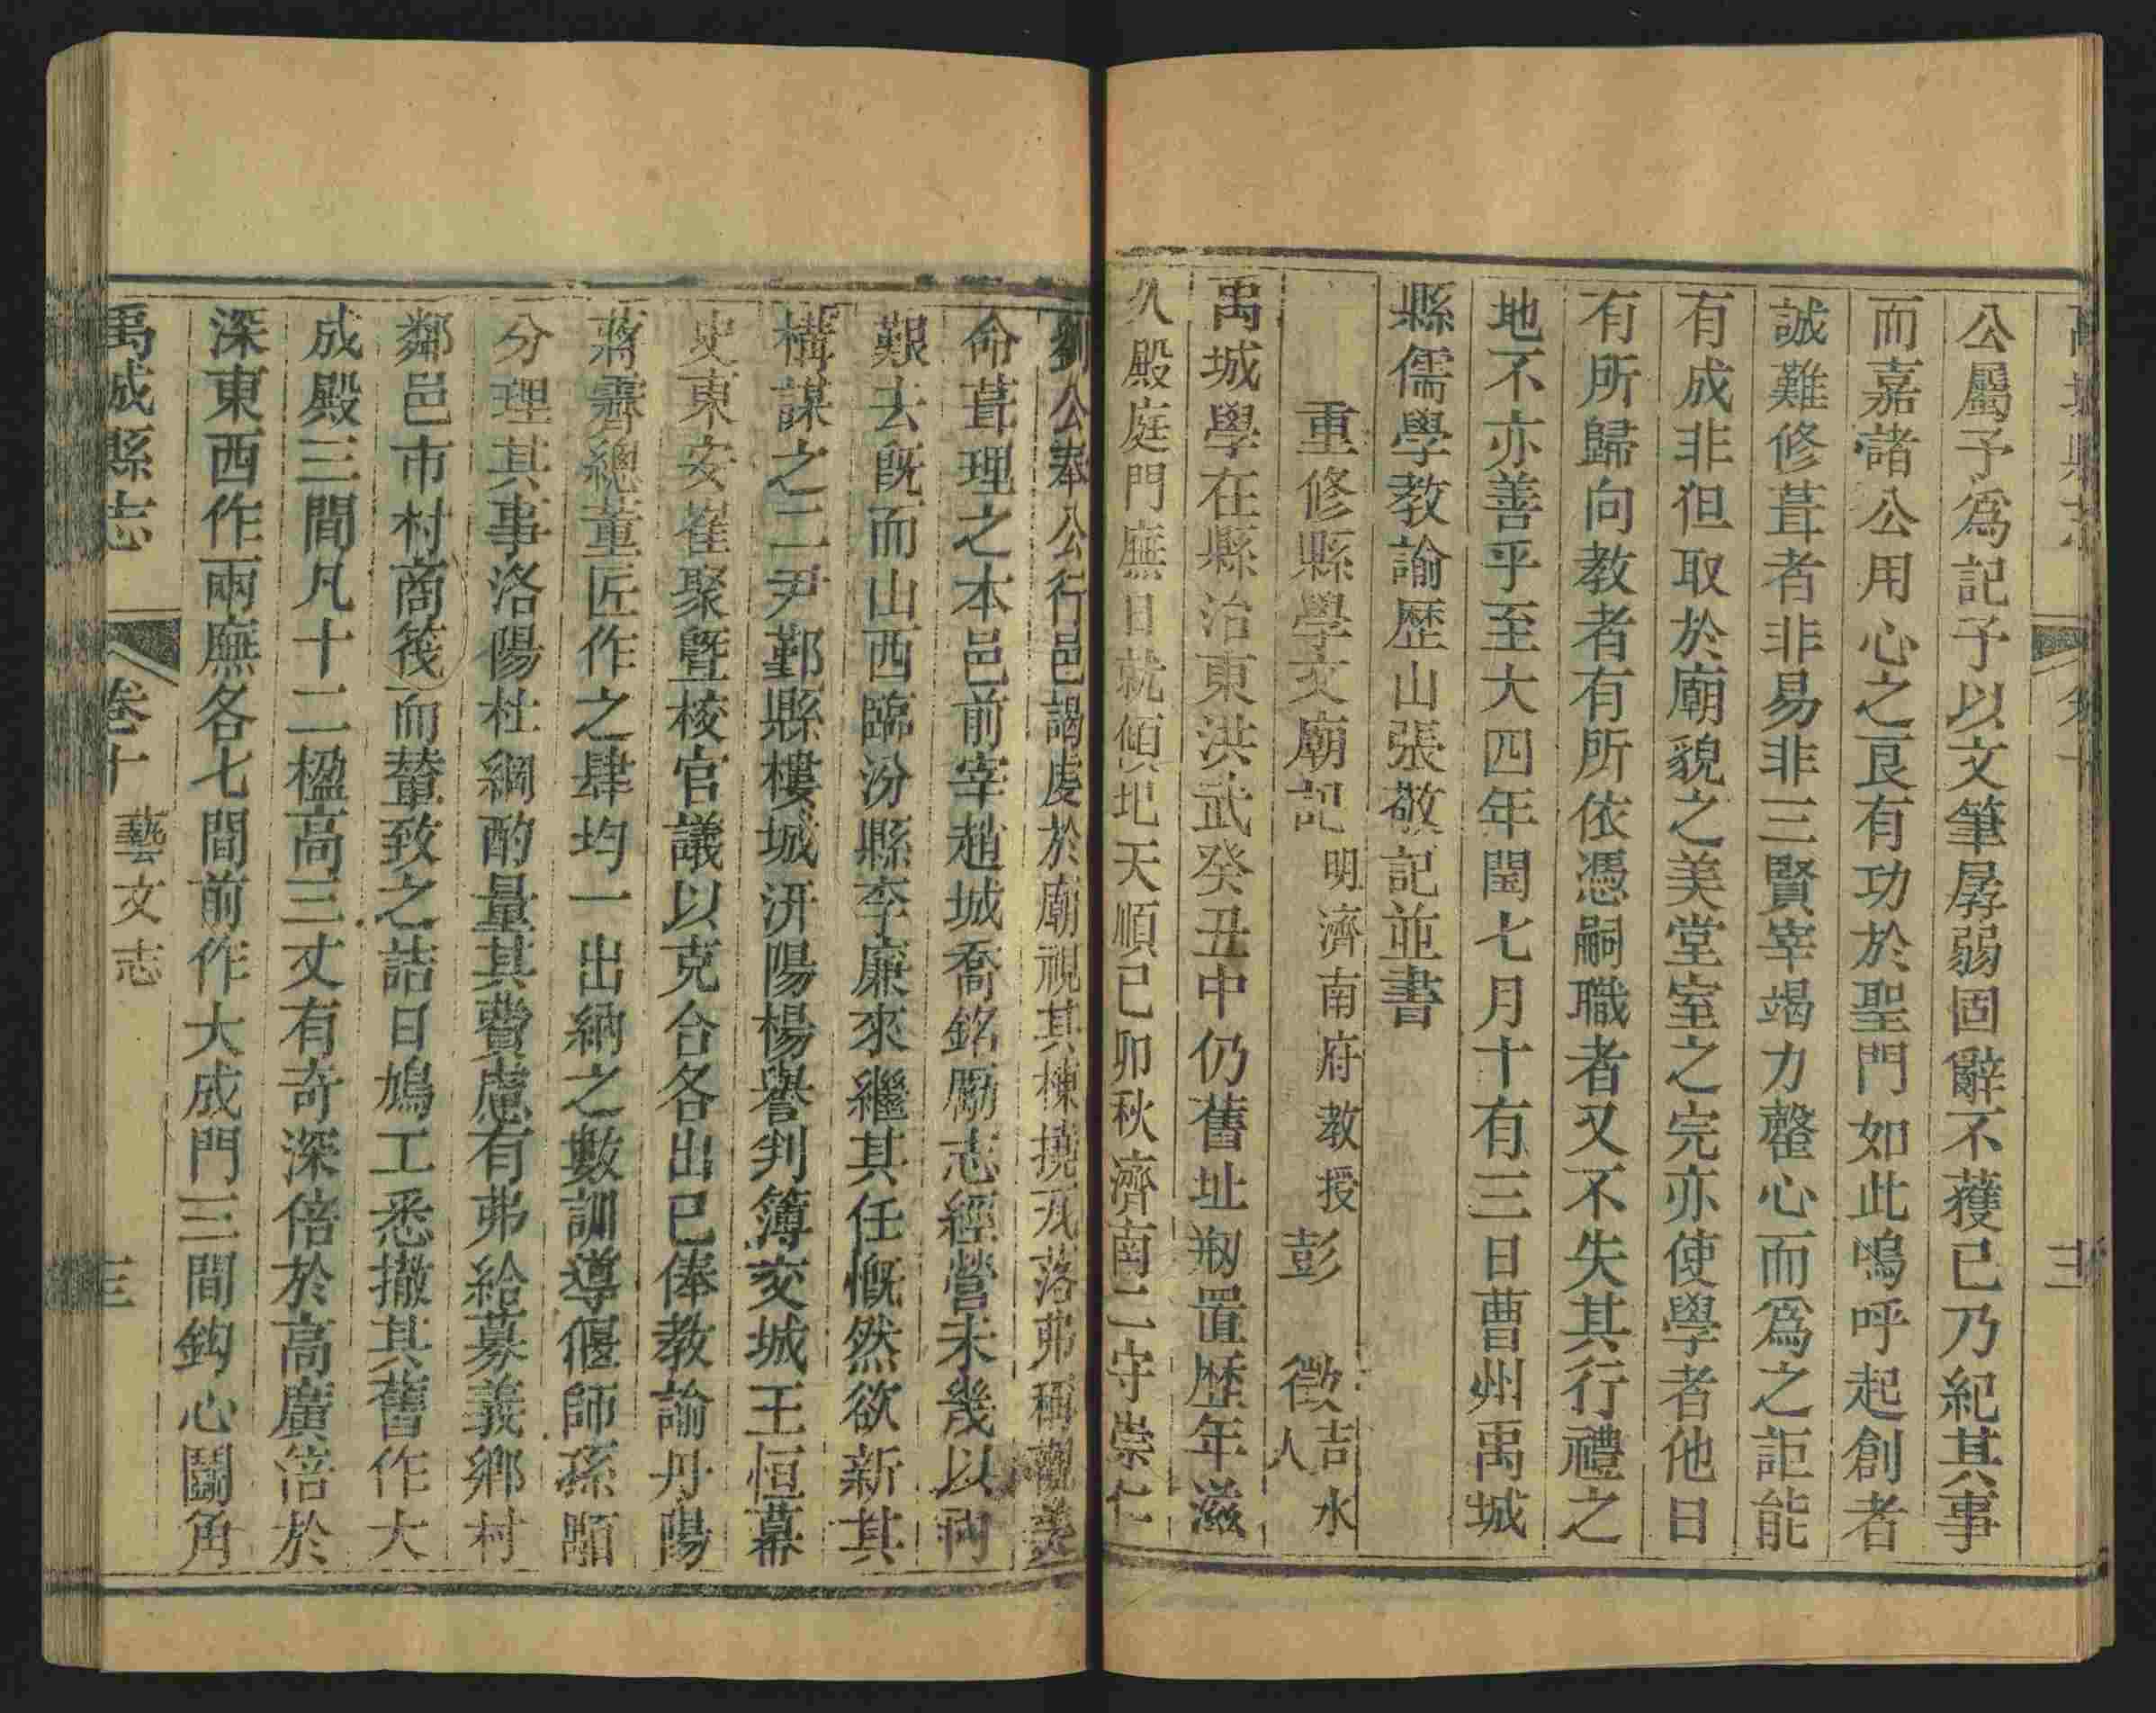 公屬予爲記予以文筆孱弱固辭不獲已乃紀其事
而嘉諸公用心之良有功於聖門如此嗚呼起創者
誠難修葺者非易非三賢宰竭力罄心而爲之詎能
有成非但取於廟貌之美堂室之完亦使學者他日
有所歸向教者有所依憑嗣職者又不失其行禮之
地不亦善乎至大四年閏七月十有三日曹州禹城
縣儒學教諭歷山張敬記並書
重修縣學文廟記 明濟南府教授 彭徵 吉水人
禹城學在縣治東洪武癸丑中仍舊址剏置歷年滋
久殿庭門廡日就傾圯天順己卯秋濟南二守崇仁
劉公奉公行邑謁虔於廟視其棟撓瓦落弗稱觀羙
命葺理之本邑前宰趙城喬銘勵志經營未幾以
艱去旣而山西臨汾縣李廉來繼其任慨然欲新其
構謀之二尹鄞縣樓城汧陽楊譽判簿交城王恒幕
史東安崔聚曁校官議以克合各出已俸教諭丹陽
蔣霽總董匠作之肆均一出納之數訓導偃師孫顒
分理其事洛陽杜綱酌量其費慮有弗給募義鄉村
鄰邑市村商筏而輦致之詰日鳩工悉撤其舊作大
成殿三間凡十二楹高三丈有奇深倍於高廣倍於
深東西作兩廡各七間前作大成門三間鈎心鬪角
禹城縣志 卷十 藝文志 三